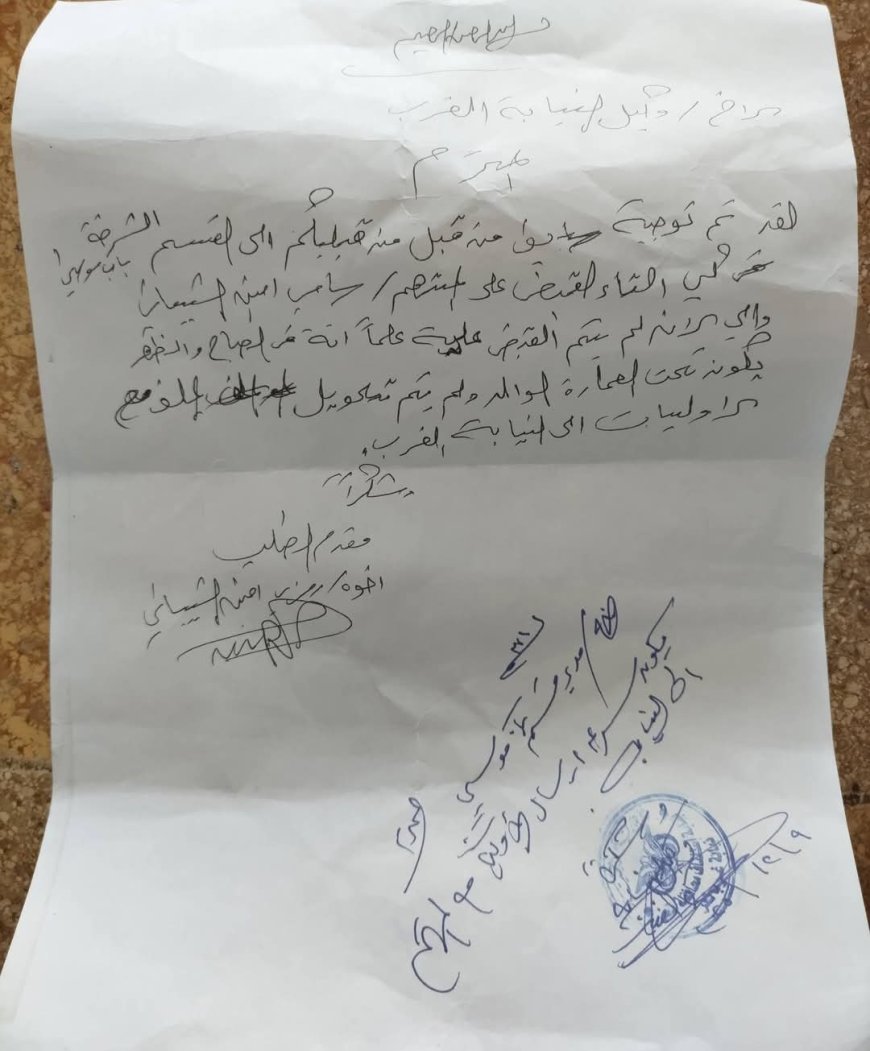 الاخ / وكيل النيابة الغرب
المحترم
لقد تم توجية سابق من قبل من قبلكم الى القسم الشرطة
باب موسى
لكي القاء القبض على المتهم / سامي امين الشيباني
والى الان لم يتم القبض علية علماً انة في الصباح والظهر
يكون تحت العمارة الوالد ولم يتم تحويل الملف مع
الاوليات الى النيابة الغرب.
شكراً
مقدم الطلب
اخوه / امين الشيباني
الاخ / مدير قسم باب موسى
يكون سرعه ارسال الاوليات مع المتهم
الى النيابة